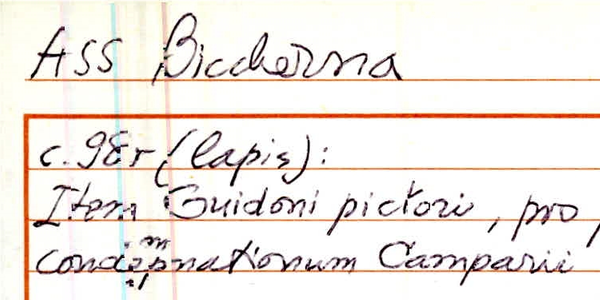 ASS Biccherna
c. 98r (lapis):
Item Guidoni pictori, pro
condempnationum Camparii